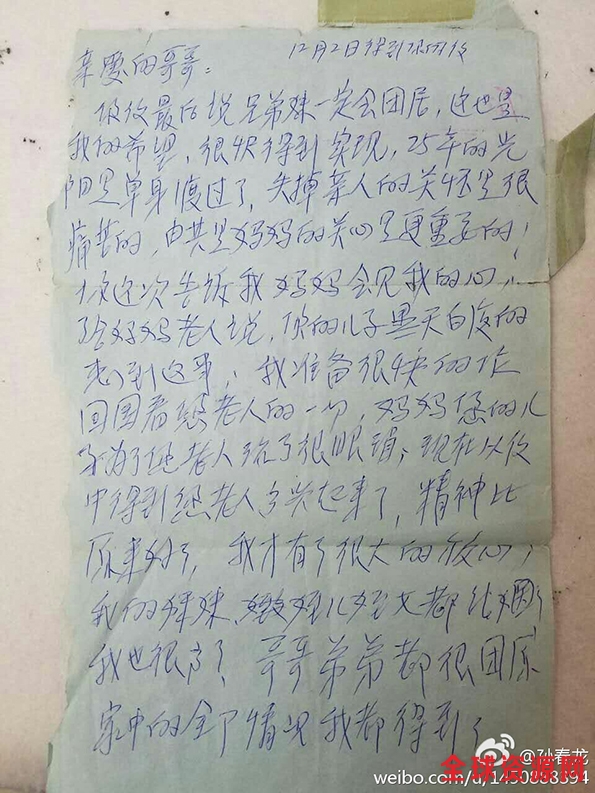 亲爱的哥哥: 12月2日得到你的信
信后最后说兄弟妹一定会团居,这也是
我的希望,很快得到实现,25年的光
阴是单身渡过了,失掉亲人的关怀是很
痛苦的,由其是妈妈的关心是更重要的;
你这次告诉我妈妈会见我的心,
给妈妈老人说,你的儿子黑天白夜的
想到这事,我准备很快的作
回国看您老人的一切,妈妈您的儿
子为了您老人流了很眼泪;现在以信
中得到您老人高兴起来了,精神比
原来好了,我才有了很大的放心;
我的妹妹、嫂嫂侄儿侄女都结烟了
我也很 了,哥哥弟弟都很团原
家中的全下情况我都得到了
@孙春龙
全球资源网
weibo.com/u/1430883394